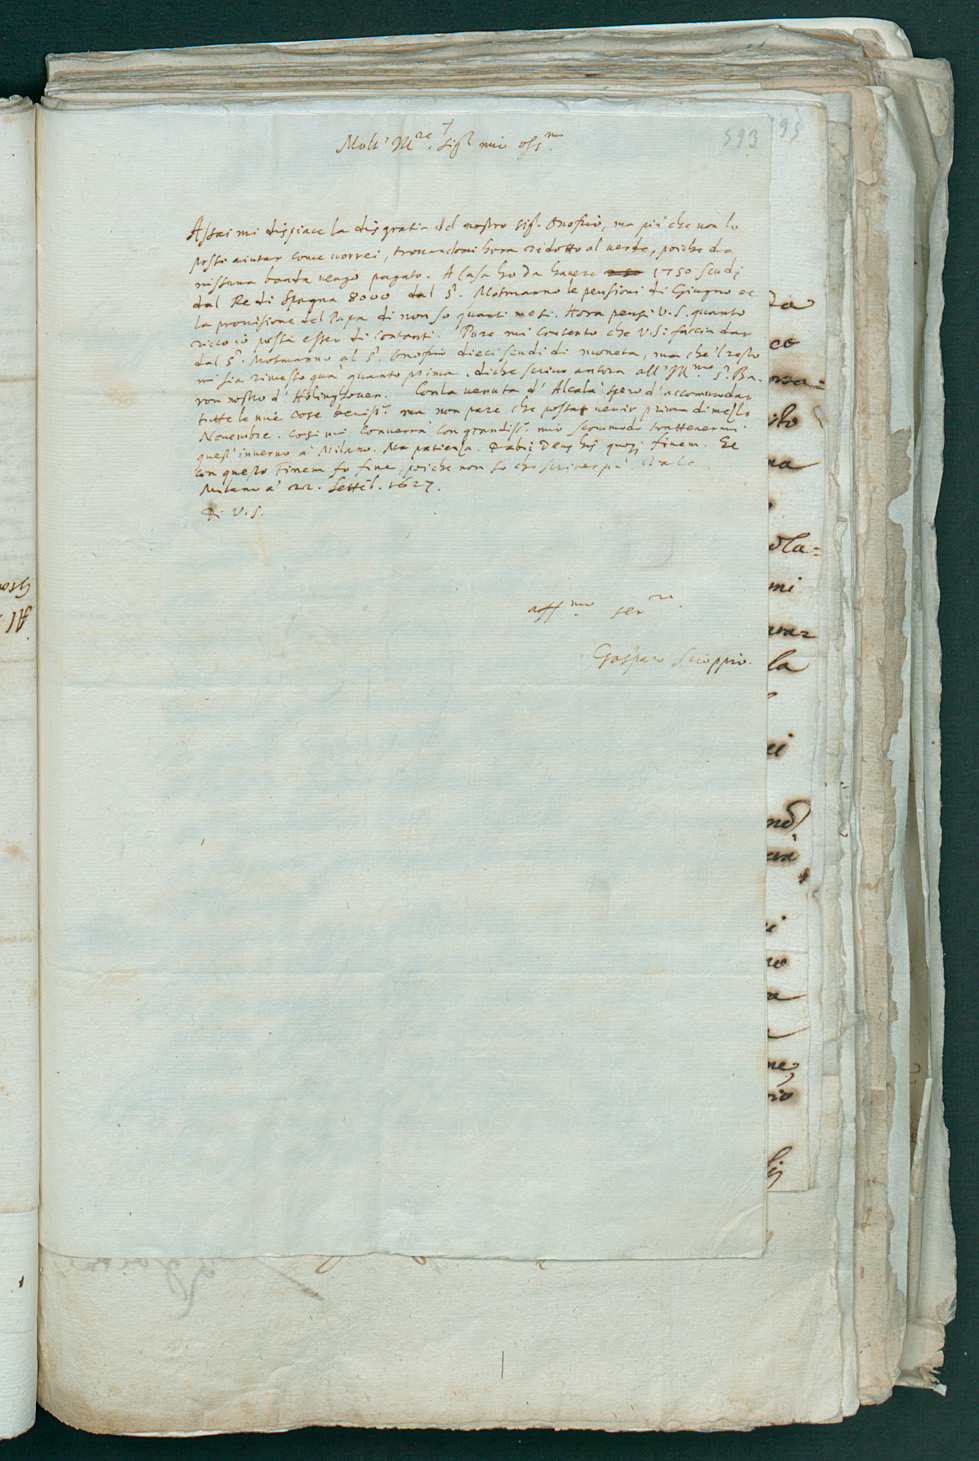 593 95
†
Molt' Ill.re Sig.r mio oss.mo
Assai mi dispiace la disgratia del nostro Sig.r Onofrio, ma più che non lo
posso aiutar come vorrei, trovandomi hora ridotto al verde, poiche da
nissuna banda vengo pagato. A Casa ho da havere 1750 scudi
dal Re di Spagna 8000 dal S.r Motmanno le pensioni di Giugno et
la provisione del Papa di non so quanti mesi. Hora pensi V.S. quanto
ricco io possa esser di contanti. Pure mi contento che V.S. faccia dar
dal S.r Motmanno al S.r Onofrio dieci scudi di moneta, ma che'l resto
mi sia rimesso quà quanto prima, di che scrivo ancora all'Ill.mo S.r Ba-
ron nostro d'
Con la venuta d'Alcala spero d'accommodar
tutte le mie cose beniss.o ma non pare che possa venir prima di mezzo
Novembre. Cosi mi converrà con grandiss.o mio scommodo trattenermi
quest'inverno a Milano. Ma patienza. Dabit Deus his quoque finem. Et
con questo finem fo fine, poiche non so che scriver più. Vale
Milano a' 22. Setteb. 1627.
Di V.S.
aff.mo ser.re
Gasparo Scioppio.